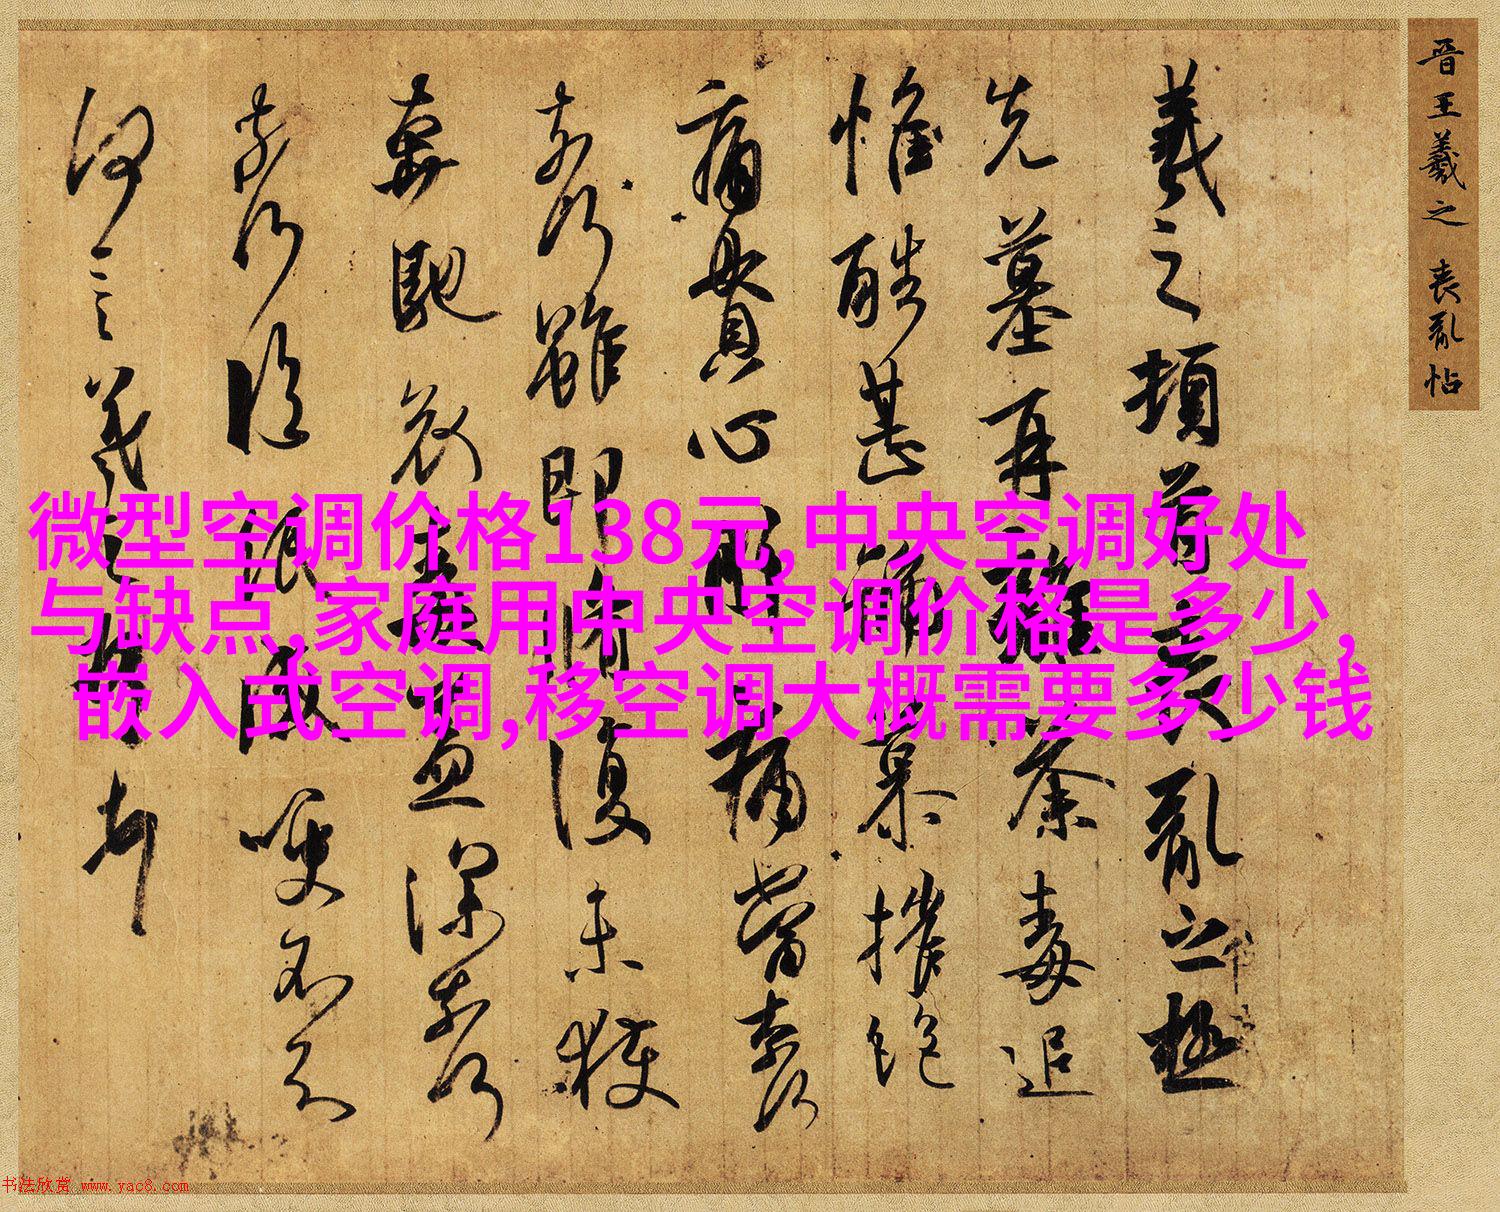 晋王羲之 喪亂帖
羲之頓首喪亂之極
先墓再離荼毒追
惟酷甚號慕摧絕
痛貫心肝痛當奈何
奈何雖即脩復未獲
奔馳哀毒益深奈何
奈何臨紙感哽不知
何言羲之頓首頓首
微型空调价格138元,中央空调好处
与缺点,家庭用中央空调价格是多少,
嵌入式空调,移空调大概需要多少钱
书法欣赏 www.yac8.com